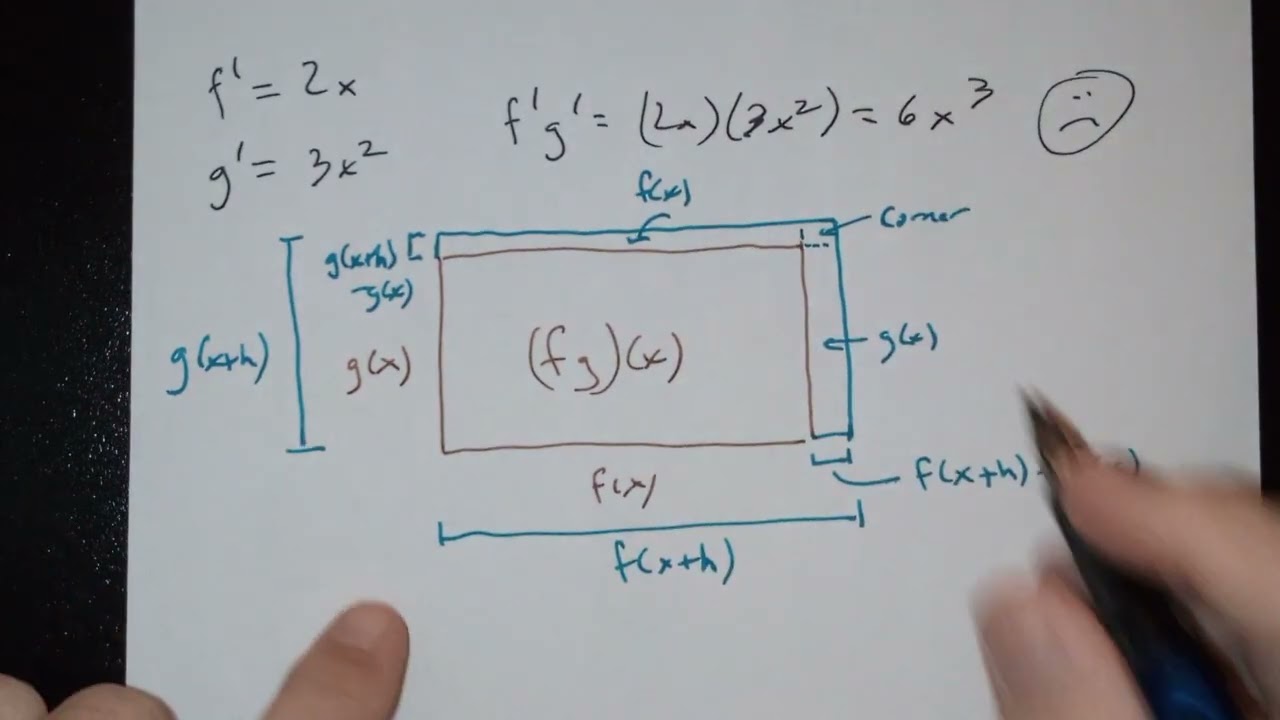 f' = 2x
f'g' = (2x)(3x²) = 6x³
g' = 3x²
f(x)
Corner
g(x+h)
-g(x)
g(x+h)
g(x)
(fg)(x)
g(x)
f(x)
f(x+h)
f(x+h)